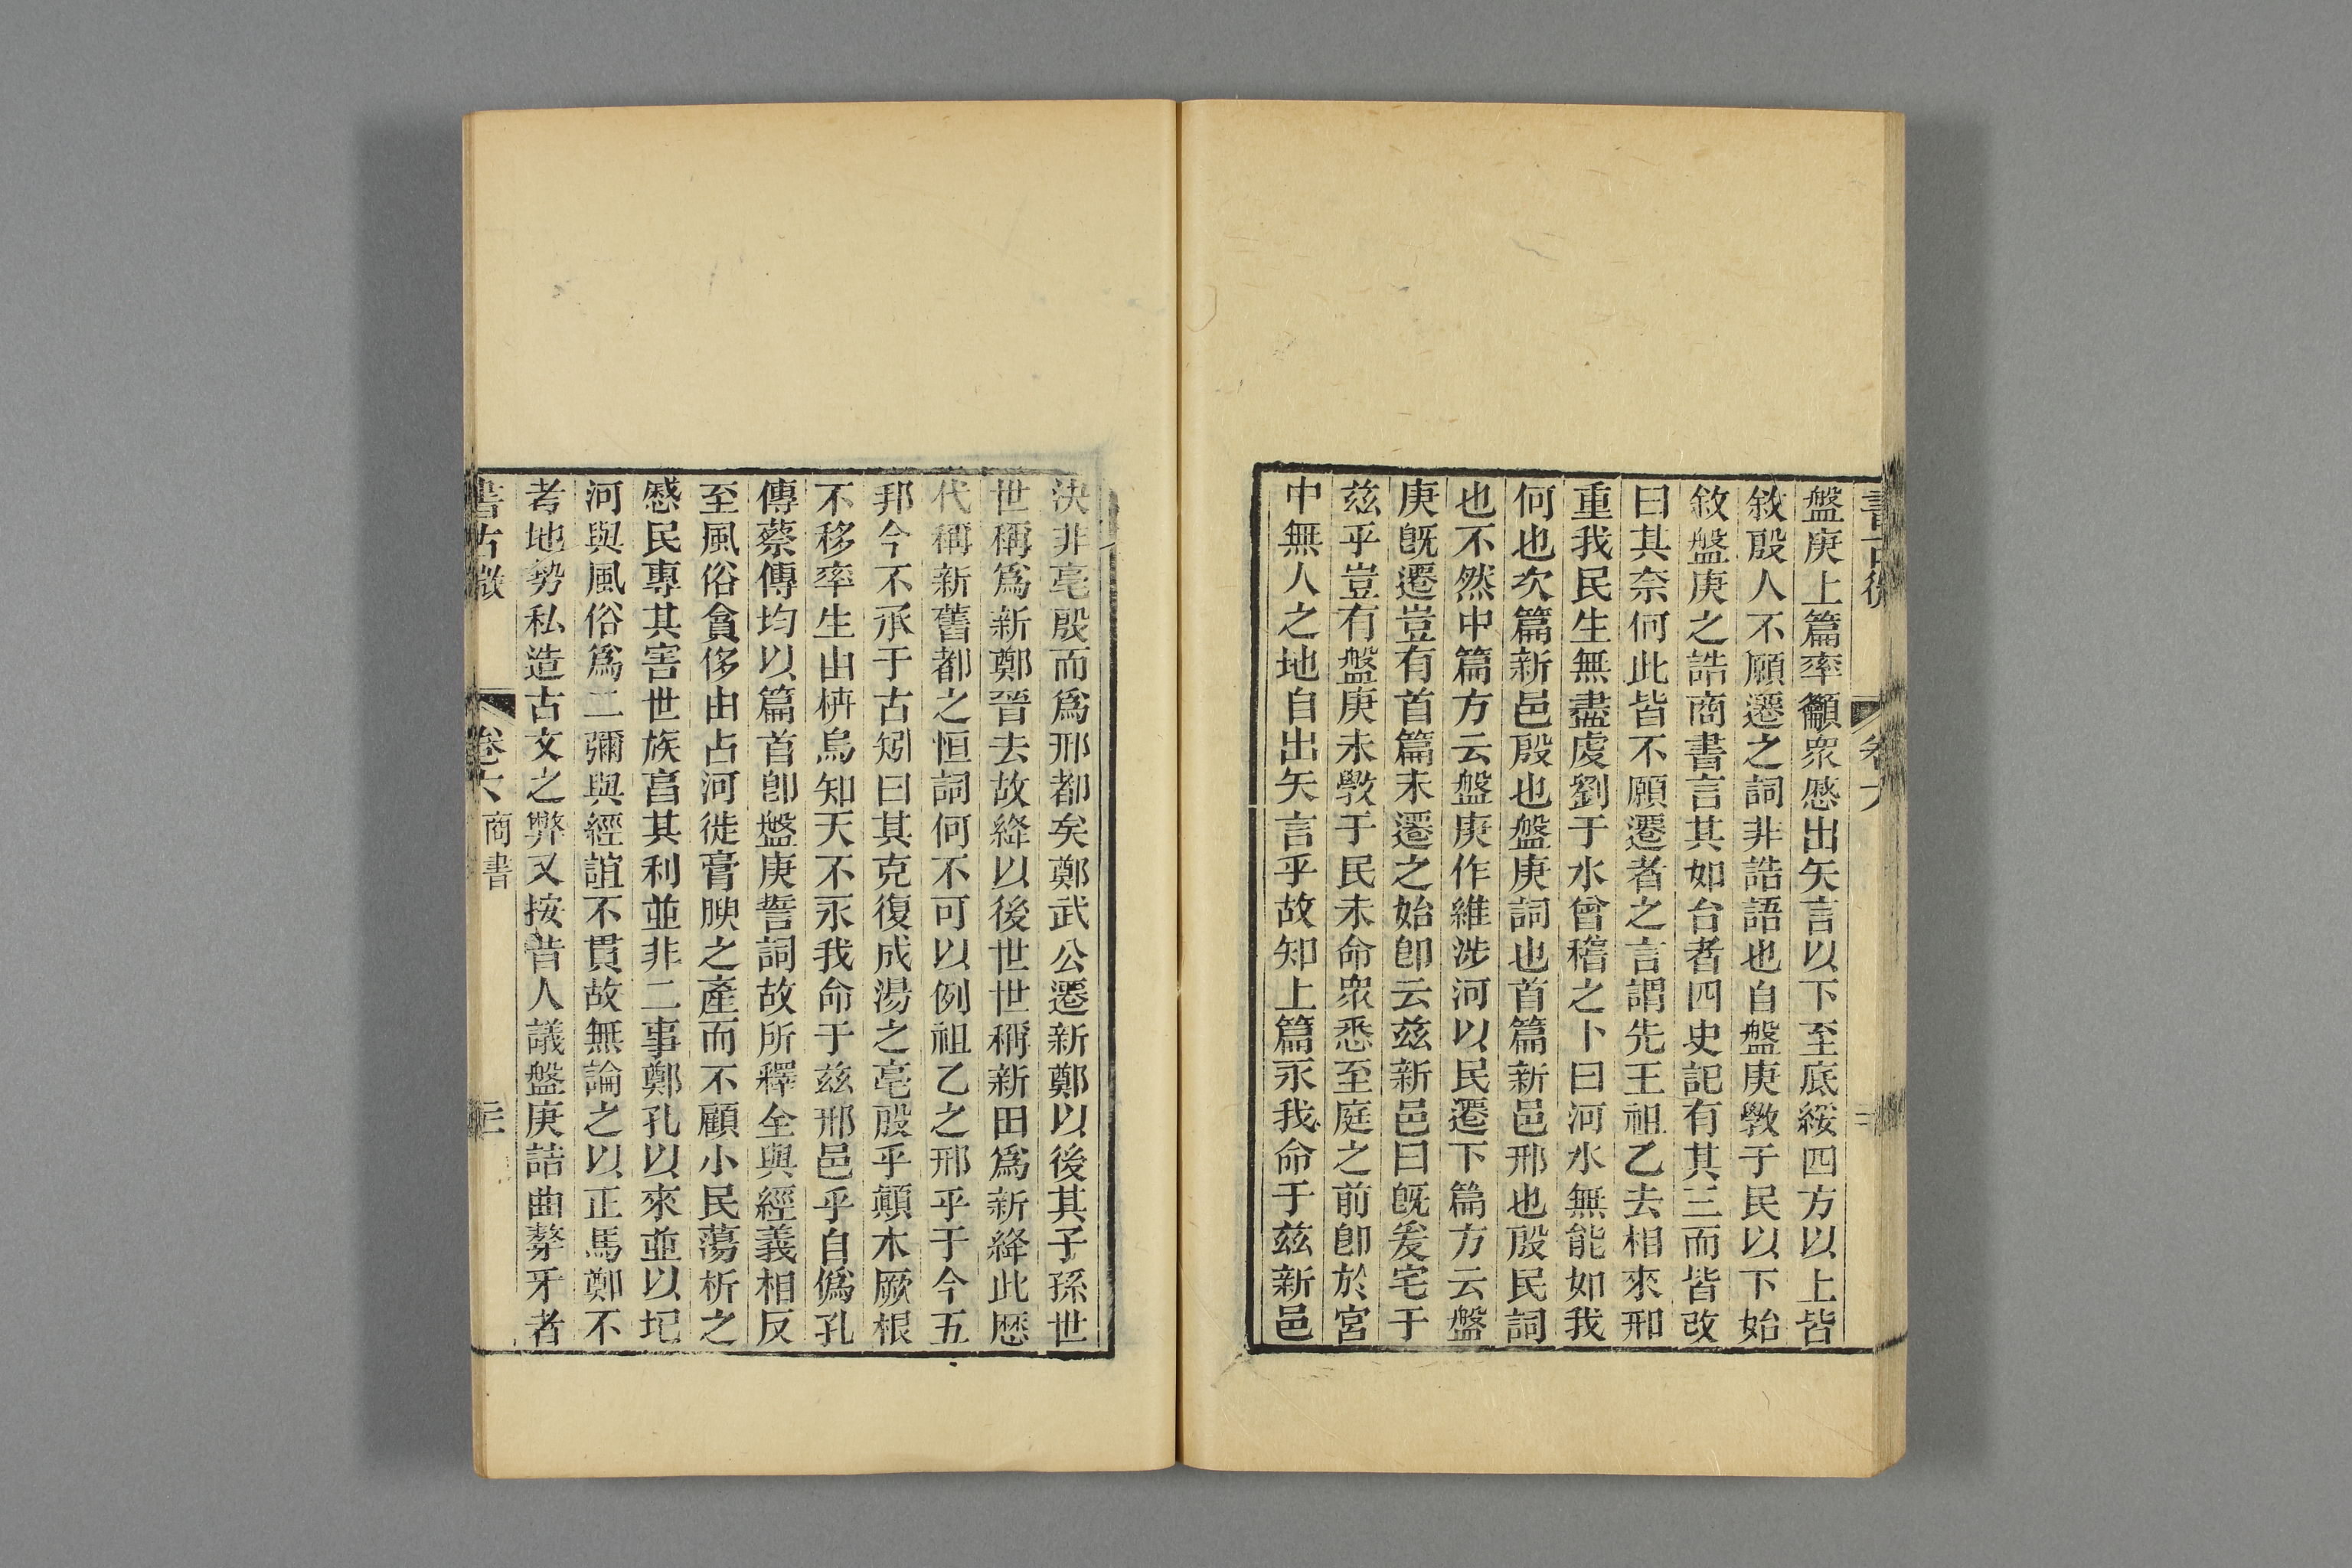 盤庚上篇率籲衆慼出矢言以下至底綏四方以上皆
敘殷人不願遷之詞非誥語也自盤庚斆于民以下始
敘盤庚之誥商書言其如台者四史記有其三而皆改
曰其奈何此皆不願遷者之言謂先王祖乙去相來邢
重我民生無盡虔劉于水曾稽之卜曰河水無能如我
何也次篇新邑殷也盤庚詞也首篇新邑邢也殷民詞
也不然中篇方云盤庚作維涉河以民遷下篇方云盤
庚旣遷豈有首篇未遷之始卽云茲新邑曰旣爰宅于
茲乎豈有盤庚未斆于民未命衆悉至庭之前卽於宮
中無人之地自出矢言乎故知上篇永我命于茲新邑
決非亳殷而爲邢都矣鄭武公遷新鄭以後其子孫世
世稱爲新鄭晉去故絳以後世世稱新田爲新絳此歷
代稱新舊都之恒詞何不可以例祖乙之邢乎于今五
邦今不承于古矧曰其克復成湯之亳殷乎顛木厥根
不移率生由枿烏知天不永我命于茲邢邑乎自僞孔
傳蔡傳均以篇首卽盤庚誓詞故所釋全與經義相反
至風俗貪侈由占河徙膏腴之產而不顧小民蕩析之
慼民專其害世族亯其利並非二事鄭孔以來並以圯
河與風俗爲二彌與經誼不貫故無論之以正馬鄭不
考地勢私造古文之弊又按昔人議盤庚詰曲聱牙者
書古微
卷六 商書